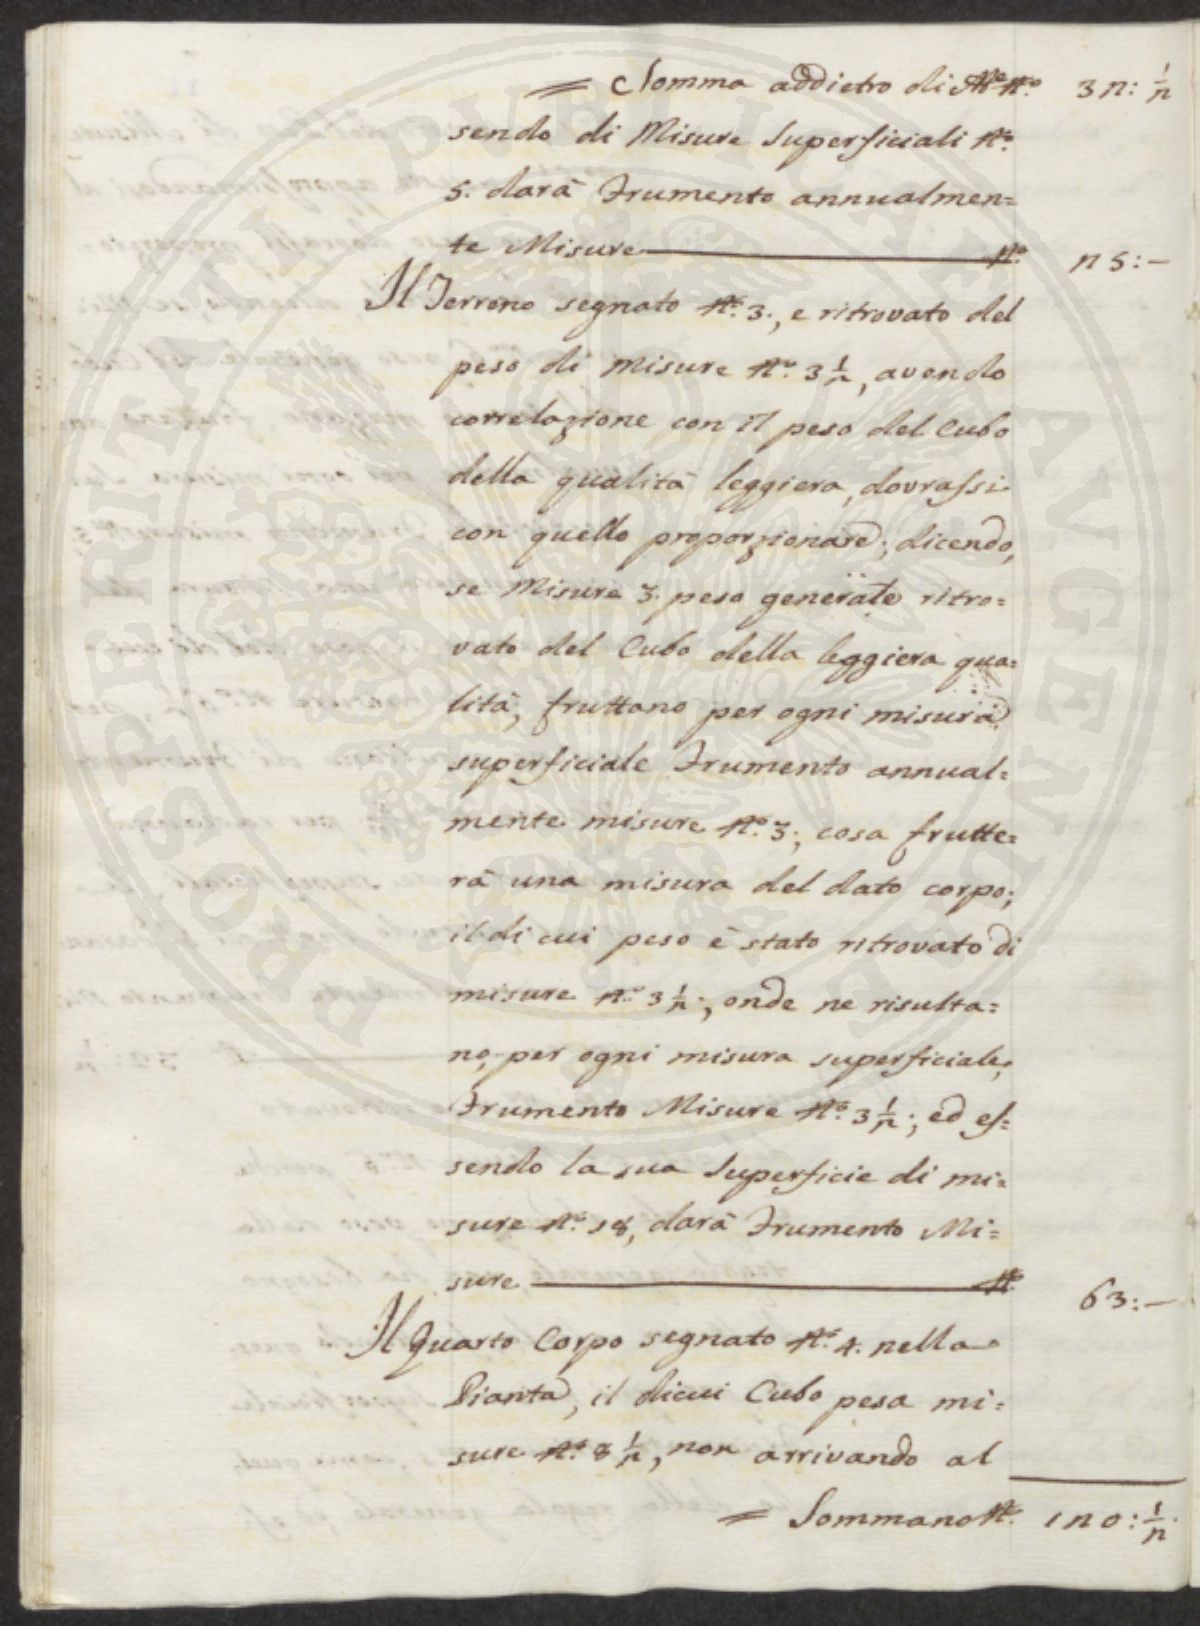 = Somma addietro di N.° N.° 32: 1/2
sendo di Misure Superficiali N.°
5. darà Frumento annualmen=
te Misure N.° 25:—
Il Terreno segnato N.° 3., e ritrovato del
peso di Misure N.° 3 1/2, avendo
correlazione con il peso del Cubo
della qualità leggiera, dovrassi
con quello proporzionare; dicendo,
se Misure 3. peso generale ritro=
vato del Cubo della leggiera qua=
lità, fruttano per ogni misura
superficiale Frumento annual=
mente misure N.° 3; cosa frutte=
rà una misura del dato corpo;
il di cui peso è stato ritrovato di
misure N.° 3 1/2; onde ne risulta=
no, per ogni misura superficiale,
Frumento Misure N.° 3 1/2; ed es=
sendo la sua Superficie di mi=
sure N.° 18, darà Frumento Mi=
sure N.° 63:—
Il Quarto Corpo segnato N.° 4. nella
Pianta, il dicui Cubo pesa mi=
sure N.° 8 1/2, non arrivando al
= Sommano N.° 120: 1/2
PROSPERITATI PVBLICAE AVGENDAE